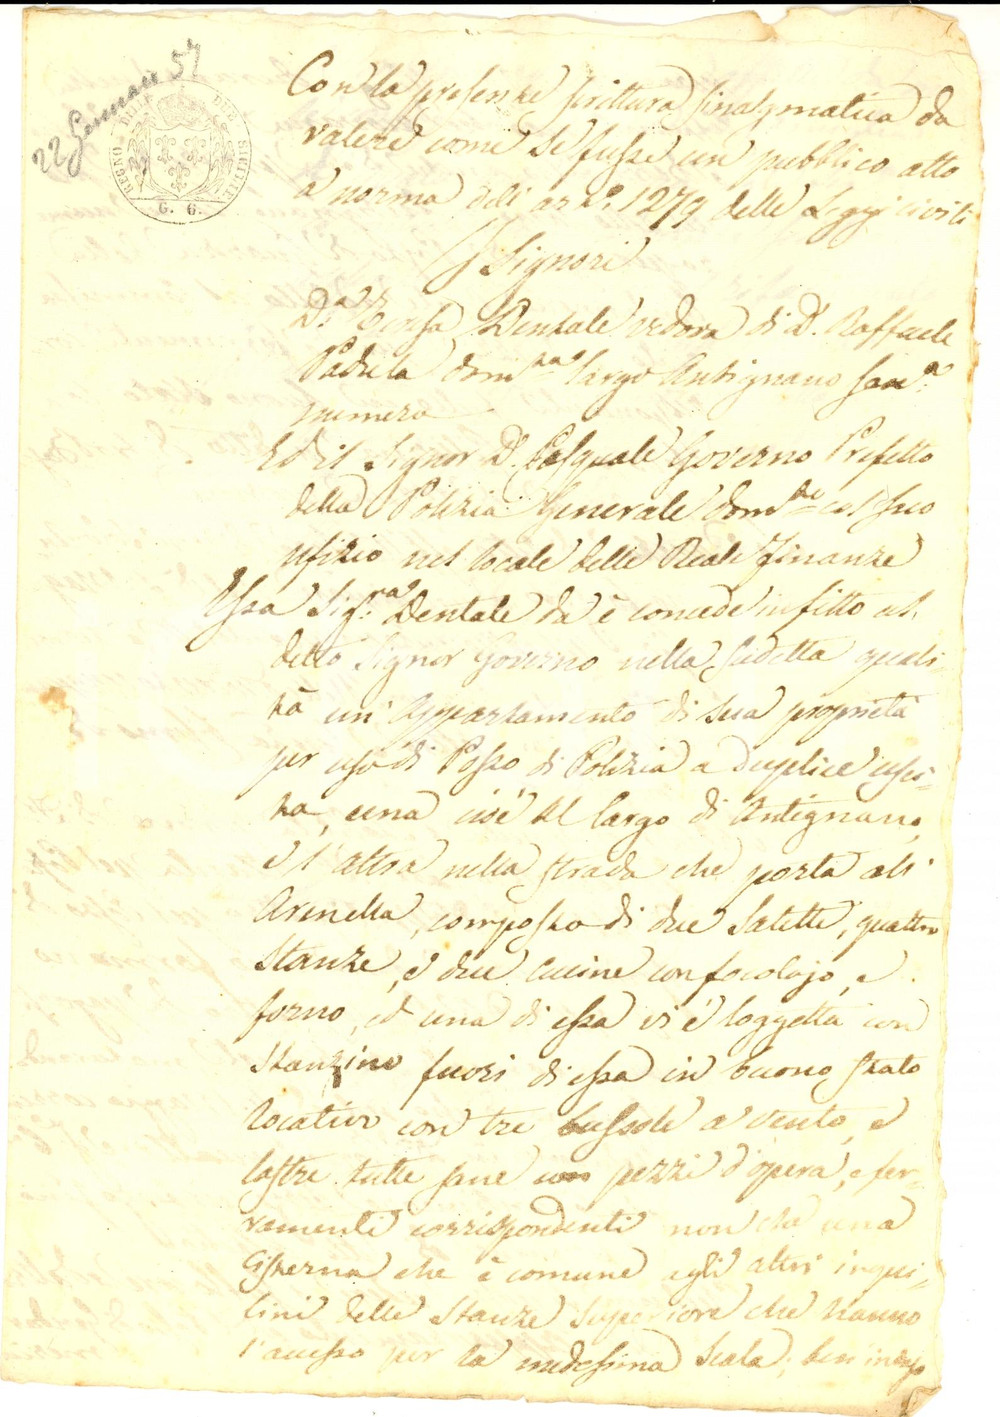 22 Gennaio 57
REGNO DELLE DUE SICILIE
G. 6.
Con la presenze scrittura sinalgmatica da
valere come se fusse un pubblico atto
a norma dell ar.º 1279 delle Leggi civili
I Signori
D.ª Teresa Dentale vedova di D. Raffaele
Padula dom.ta largo Antignano sen.ª
numero
Ed il Signor D. Pasquale Governo Prefetto
della Polizia Generale dom.to col suo
ufizio nel locale delle Reale Finanze
Essa Sig.ra Dentale da è concede in fitto al
detto Signor Governo nella sudetta quali-
tà un' Appartamento di sua proprietà
per uso di Posto di Polizia a duplice usci-
ta, una cioè al largo di Antignano,
e l'altra nella strada che porta all'
Arenella, composto di due Salette, quattro
Stanze, e due cucine con focolajo, e
forno, ed una di essa vi è loggetta con
Stanzino fuori di essa in buono stato
locativo con tre bussole a vento, e
lastre tutte sane con pezzi d'opera, e fer-
ramenti corrispondenti non che una
Cisterna che è comune agli altri inqui-
lini delle Stanze Superiore che hanno
l'accesso per la medessima Scala; ben inteso